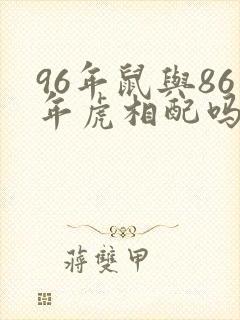 96年鼠與86
年虎相配吗
蔣雙甲